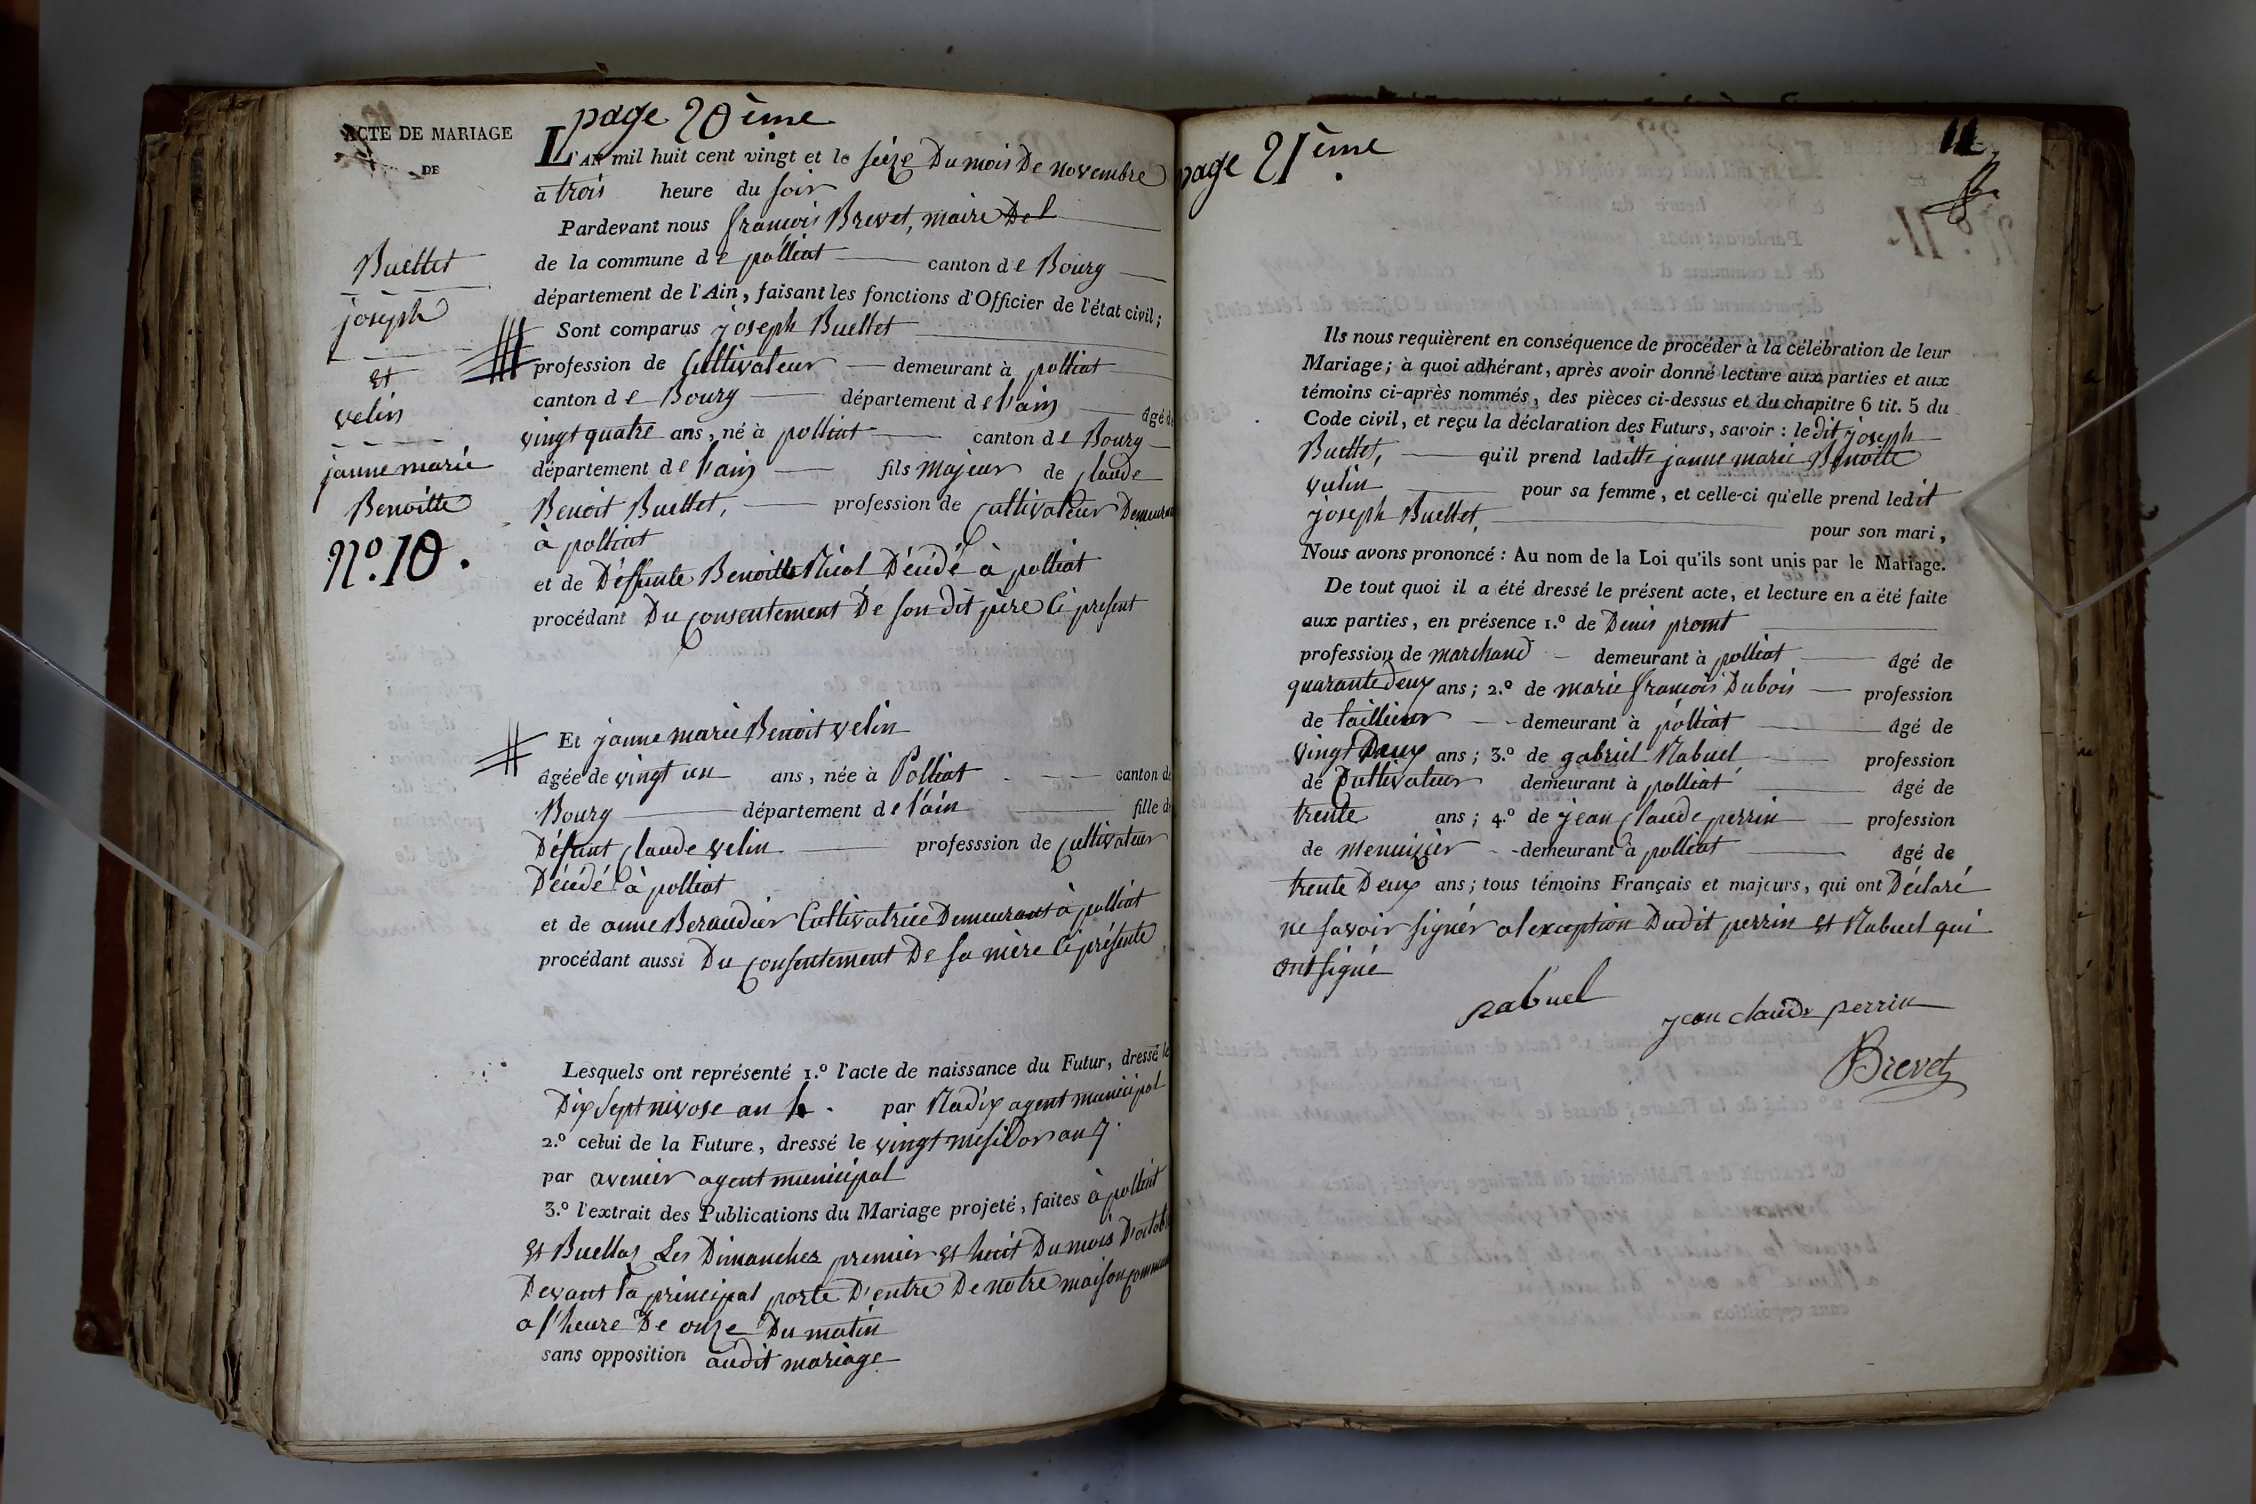 page 20ème
ACTE DE MARIAGE
DE
Buellet
joseph
et
velin
janne marie
Benoitte
N.º 10.
L'AN mil huit cent vingt et le seize Du mois De novembre
à trois heure du soir
Pardevant nous françois Brevet, maire Del
de la commune de polliat canton de Bourg
département de l'Ain, faisant les fonctions d'Officier de l'état civil;
Sont comparus joseph Buellet
profession de Cultivateur demeurant à polliat
canton de Bourg département de l'ain âgé de
vingt quatre ans, né à polliat canton de Bourg
département de l'ain fils majeur de claude
Benoit Buellet, profession de cultivateur Demeurant
à polliat
et de Deffunte Benoitte Décédé à polliat
procédant Du consentement De son dit père Ci présent
Et janne marie Benoit velin
âgée de vingt un ans, née à Polliat canton de
Bourg département de l'ain fille de
Défunt claude velin professsion de cultivateur
Décédé à polliat
et de anne Beraudier Cultivatrice Demeurant à polliat
procédant aussi Du consentement De sa mère Ci présente
Lesquels ont représenté 1.º l'acte de naissance du Futur, dressé le
Dix sept nivose an 4. par Nadix agent municipal
2.º celui de la Future, dressé le vingt mesidor an 7.
par avenier agent municipal
3.º l'extrait des Publications du Mariage projeté, faites à polliat
et Buellas Les Dimanches premier et huit Du mois D'octobre
Devant la principal porte D'entre De notre maison commune
a l'heure De onze Du matin
sans opposition audit mariage
page 21ème
11
Ils nous requièrent en conséquence de procéder à la célébration de leur
Mariage; à quoi adhérant, après avoir donné lecture aux parties et aux
témoins ci-après nommés, des pièces ci-dessus et du chapitre 6 tit. 5 du
Code civil, et reçu la déclaration des Futurs, savoir: le dit joseph
Buellet, qu'il prend laditte janne marie Benoitte
velin pour sa femme, et celle-ci qu'elle prend ledit
joseph Buellet, pour son mari,
Nous avons prononcé: Au nom de la Loi qu'ils sont unis par le Mariage.
De tout quoi il a été dressé le présent acte, et lecture en a été faite
aux parties, en présence 1.º de Denis promt
profession de marchand demeurant à polliat âgé de
quarante Deux ans; 2.º de marie françois Dubois profession
de taillieur demeurant à polliat âgé de
vingt Deux ans; 3.º de gabriel Rabuel profession
de Cultivateur demeurant à polliat âgé de
trente ans; 4.º de jean claude perrin profession
de menuizier demeurant à polliat âgé de
trente Deux ans; tous témoins Français et majeurs, qui ont Déclaré
ne savoir signér a l'exception Dudit perrin et Rabuel qui
ont signé
rabuel
jean claude perrin
Brevet